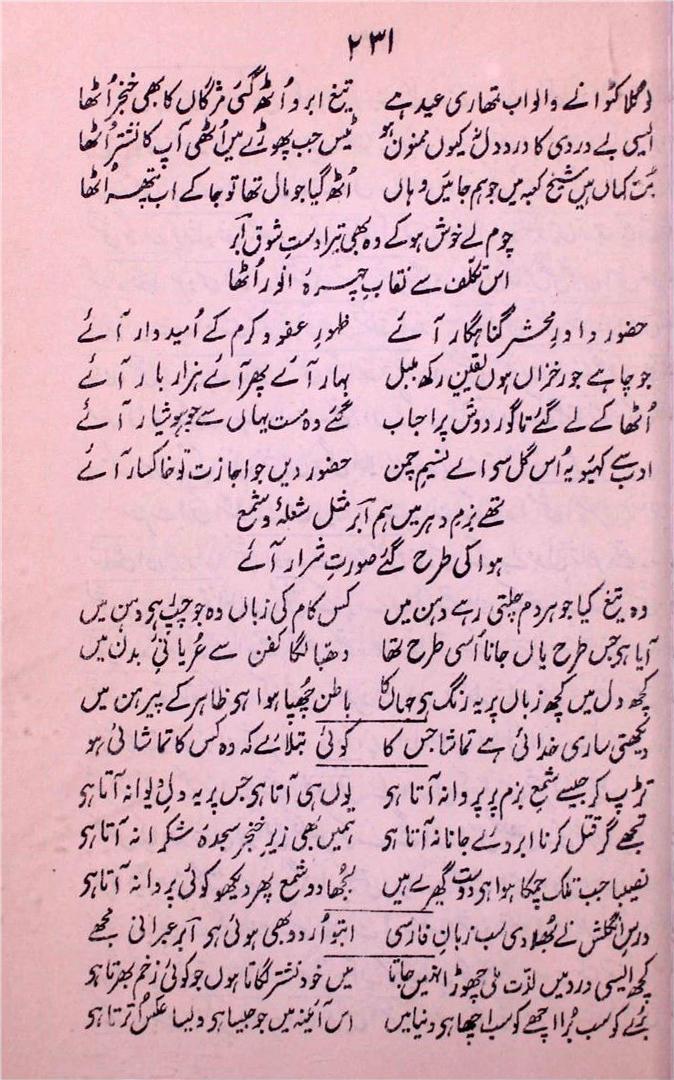 ۲۳۱
لو گلا کٹوانے والو اب تمھاری عید ہے تیغ ابرو اُٹھ گئی مژگاں کا بھی خنجر اُٹھا
ایسی بے دردی کا درد دل کیوں ممنون ہو ٹیس جب پھوڑے میں اُٹھی آپ کا نشتر اُٹھا
بت کہاں ہیں شیخ کعبہ میں جو ہم جائیں وہاں اُٹھ گیا جو مال تھا تو جا کے اب پتھر اُٹھا
چوم لے خوش ہو کے وہ بھی تیرا دستِ شوق ابر
اس تکلف سے نقابِ چہرۂ انور اُٹھا
حضور داورِ محشر گناہگار آئے ظہورِ عفو و کرم کے اُمیدوار آئے
جو چاہے جور خزاں ہوں یقین رکھ بلبل بہار آئے پھر آئے ہزار بار آئے
اُٹھا کے لے گئے تا گور دوش پر احباب گئے وہ مست یہاں سے جو ہوشیار آئے
ادب سے کہیو یہ اُس گل سے اے نسیم چمن حضور دیں جو اجازت تو خاکسار آئے
تھے بزم دہر میں ہم ابر مثل شعلۂ و شمع
ہوا کی طرح گئے صورتِ شرار آئے
وہ تیغ کیا جو ہر دم چلتی رہے دہن میں کس کام کی زباں وہ جو چپ ہی دہن میں
آیا ہی جس طرح یاں جانا اُسی طرح تھا دھبا لگا کفن سے عُریانیِ بدن میں
کچھ دل میں کچھ زباں پر یہ رنگ ہی جہاں کا باطن چھپا ہوا ہی ظاہر کے پیرہن میں
دیکھتی ساری خدائی ہے تماشا جس کا کوئی بتلائے کہ وہ کس کا تماشائی ہو
تڑپ کر جیسے شمع بزم پر پروانہ آتا ہی یوں ہی آتا ہی جس پر یہ دلِ دیوانہ آتا ہی
تجھے گر قتل کرنا ابروئے جانانہ آتا ہی ہمیں بھی زیر خنجر سجدۂ شکرانہ آتا ہی
نصیبا جب تلک چمکا ہوا ہی دوست گھیرے ہیں بجھا دو شمع پھر دیکھو کوئی پروانہ آتا ہی
درسِ انگلش نے بھلا دی سب زبانِ فارسی ابتو اُردو بھی ہوئی ہی ابر عبرانی مجھے
کچھ ایسی درد میں لذت ملی چھوڑا نہیں جاتا میں خود نشتر لگاتا ہوں جو کوئی زخم بھرتا ہو
بُرے کو سب بُرا اچھے کو سب اچھا ہی دنیا میں اس آئینہ میں جو جیسا ہی ویسا عکس اُترتا ہو